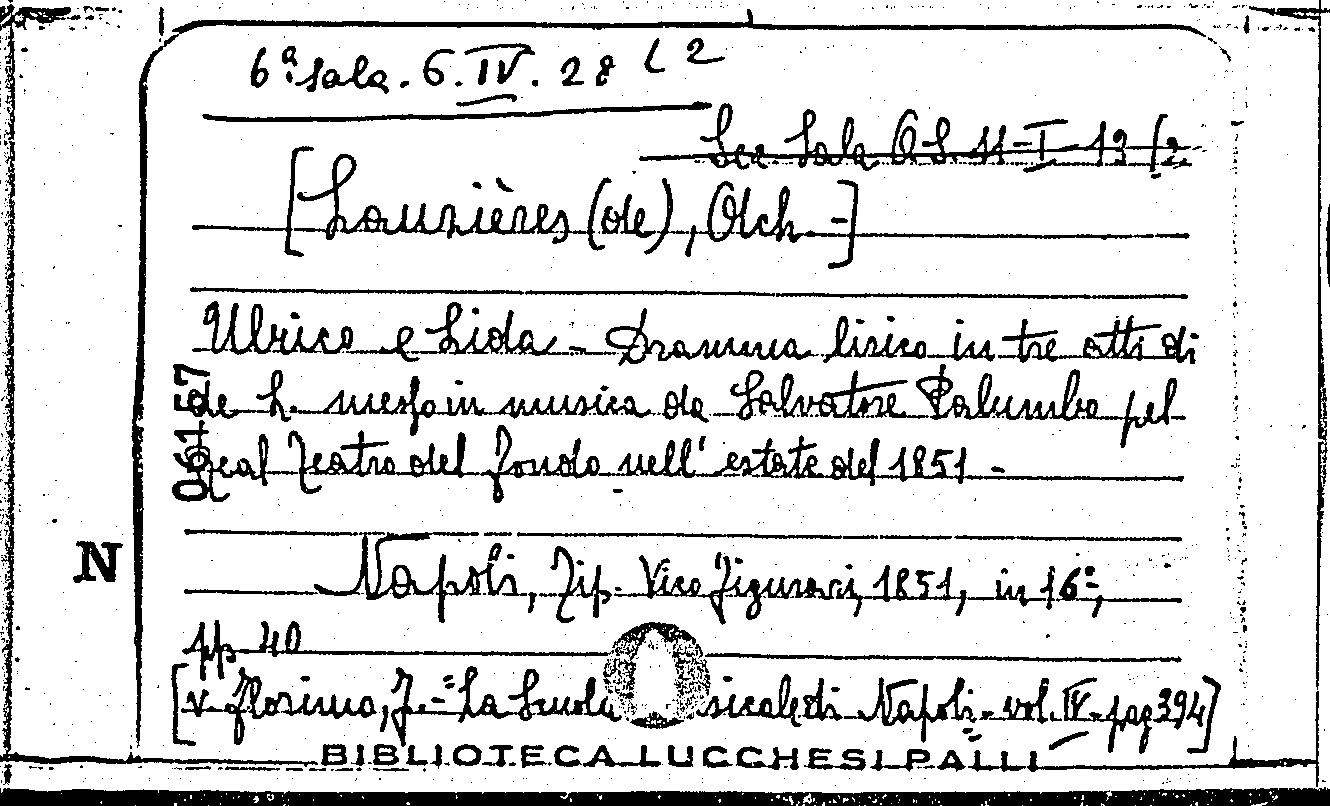 6ª sala. 6. IV. 28 (2
Sca. Sala O.S. 11-I-13 (2.
[Lauzières (de), Ach.-]
Ulrico e Lida - Dramma lirico in tre atti di
de L. messo in musica da Salvatore Palumbo pel
Real Teatro del Fondo nell' estate del 1851 -
06157
N
Napoli, Tip. Vico Figurari, 1851, in 16º,
pp. 40
[v. Florimo, F. - La Scuola sicale di Napoli - vol. IV - pag 394]
BIBLIOTECA LUCCHESI PALLI